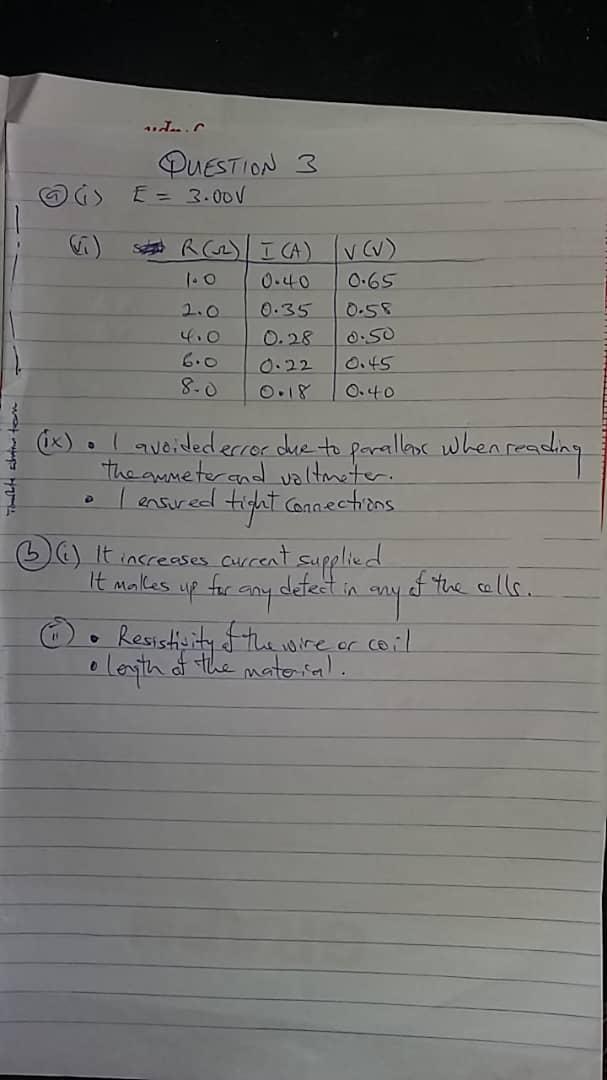 QUESTION 3
(a) (i) E = 3.00V
(vi) R(Ω) I (A) V (V)
1.0 0.40 0.65
2.0 0.35 0.58
4.0 0.28 0.50
6.0 0.22 0.45
8.0 0.18 0.40
(ix) • I avoided error due to parallax when reading
the ammeter and voltmeter.
• I ensured tight connections
(b) (i) It increases current supplied
It makes up for any defect in any of the cells.
(ii) • Resistivity of the wire or coil
• length of the material.